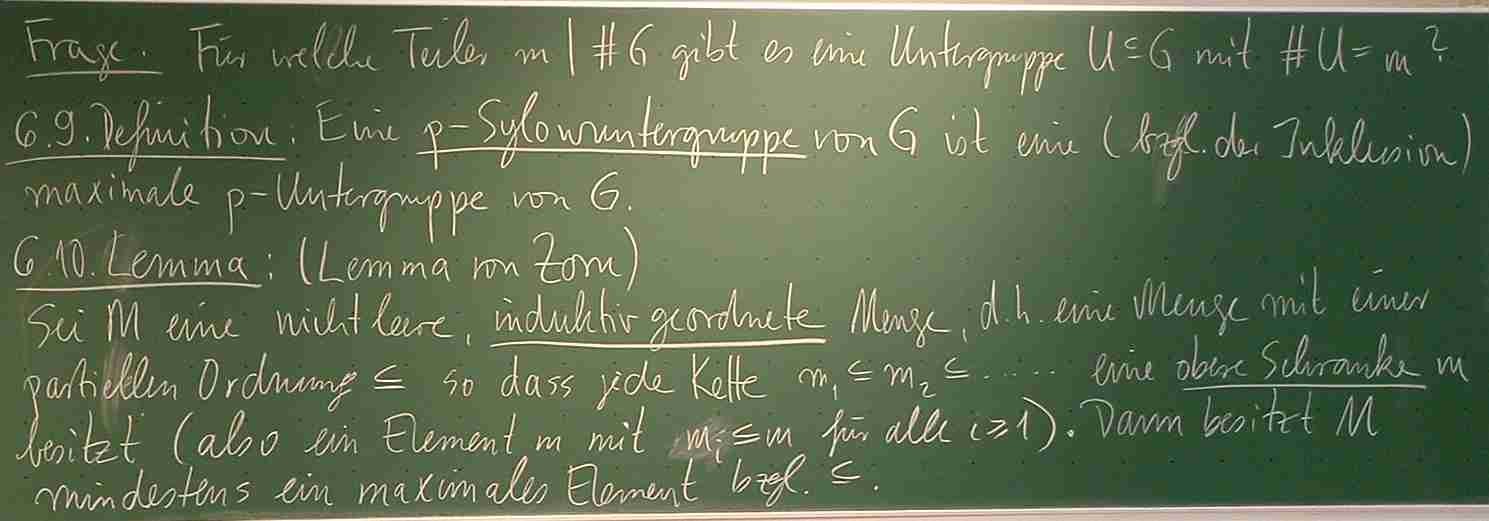 Frage. Für welche Teiler m | #G gibt es eine Untergruppe U ≤ G mit #U = m ?
6.9. Definition: Eine p-Sylowuntergruppe von G ist eine (bzgl. der Inklusion)
maximale p-Untergruppe von G.
6.10. Lemma: (Lemma von Zorn)
Sei M eine nichtleere, induktiv geordnete Menge, d.h. eine Menge mit einer
partiellen Ordnung ≤ so dass jede Kette m₁ ≤ m₂ ≤ ...... eine obere Schranke m
besitzt (also ein Element m mit mᵢ ≤ m für alle i ≥ 1). Dann besitzt M
mindestens ein maximales Element bzgl. ≤.